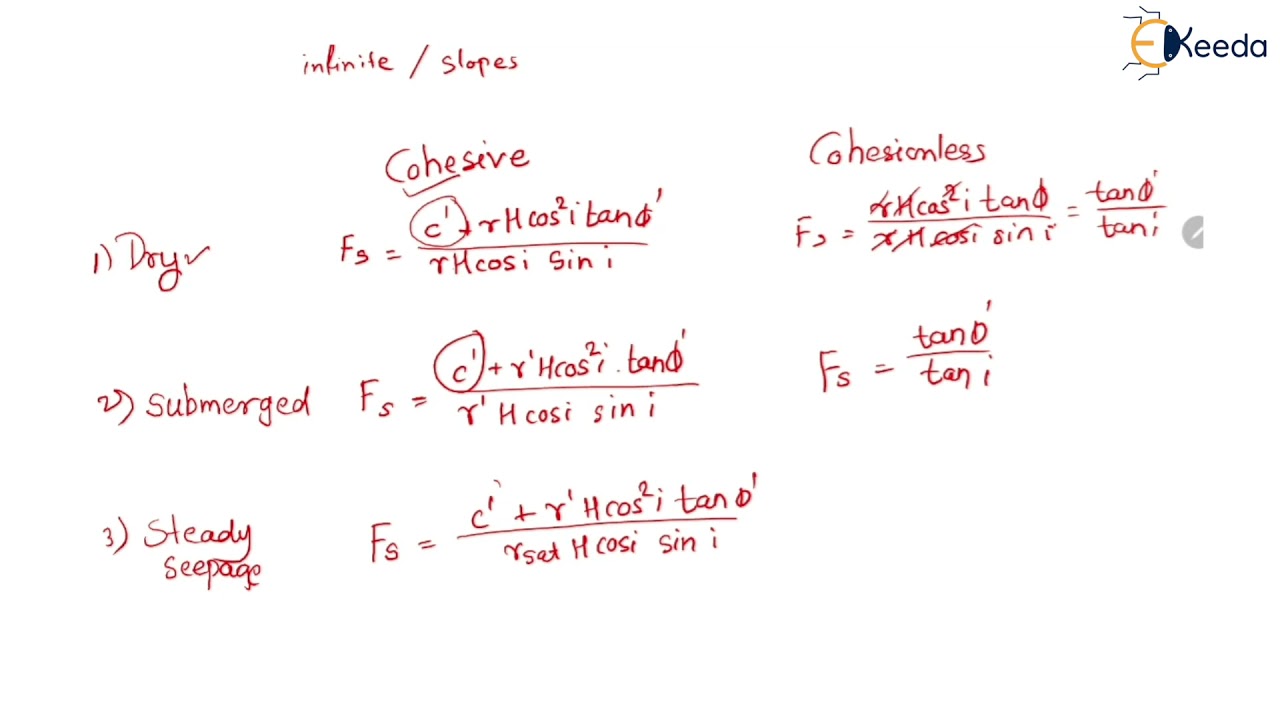 infinite / slopes
EKeeda
Cohesive
Cohesionless
1) Dry ✓
Fs = (c' + rHcos²i tanϕ') / (rHcosi sin i)
Fs = (rHcos²i tanϕ) / (rHcosi sin i) = tanϕ' / tan i
2) Submerged
Fs = (c' + r'Hcos²i . tanϕ') / (r' H cosi sin i)
Fs = tanϕ' / tan i
3) Steady
seepage
Fs = (c' + r'Hcos²i tanϕ') / (rsat H cosi sin i)